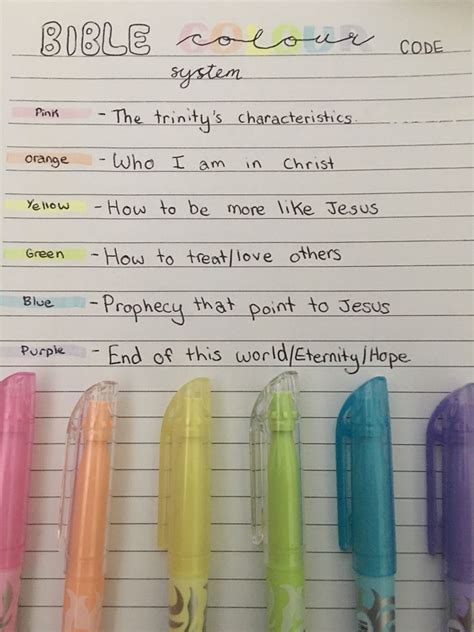 BIBLE colour CODE
system
Pink - The trinity's characteristics.
orange - Who I am in Christ
Yellow - How to be more like Jesus
Green - How to treat/love others
Blue - Prophecy that point to Jesus
Purple - End of this world/Eternity/Hope